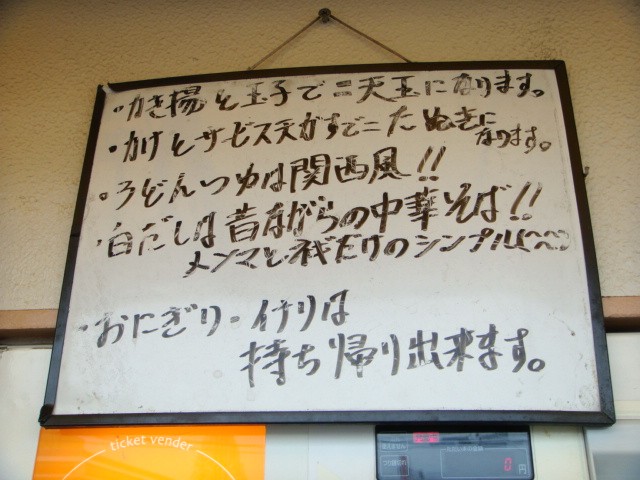 ・かき揚と玉子で=天玉になります。
・かけとサービス天がすで=たぬきに
なります。
・うどんつゆは関西風!!
・白だしは昔ながらの中華そば!!
メンマとネギだけのシンプル
・おにぎり・イナリは
持ち帰り出来ます。
ticket vender
0円